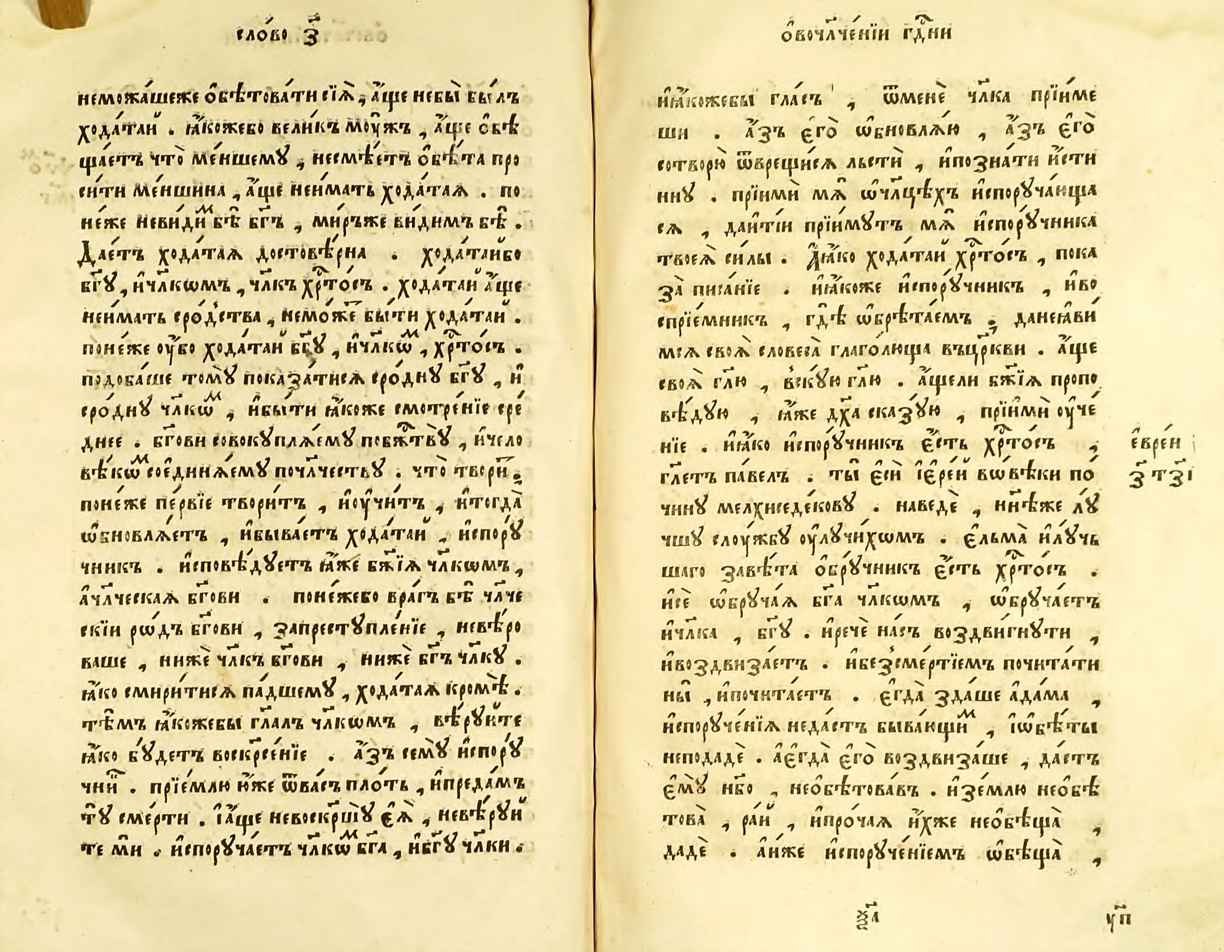 сло́во з҃
неможа́шеже ѻ҆бѣтова́ти сїѧ̀, а҆́ще небы̀ бы́лъ
хода́тай . ꙗ҆́кожебо вели́къ мꙋ́жъ , а҆́ще ѻ҆бѣ
ща́етъ что̀ ме́ншемꙋ , несмѣ́етъ ѻ҆бѣ́та про
си́ти ме́ншина , а҆́ще неи́мать хода́таѧ . по
не́же неви́диⷨ бѣ̀ бг҃ъ , ми́ръже ви́димъ бѣ̀ .
Дае́тъ хода́таѧ достовѣ́рна . хода́тайбо
бг҃ꙋ , и҆чл҃кѡмъ , чл҃къ хрⷭ҇то́съ . хода́тай а҆́ще
неи́мать сро́дства , немо́же бы́ти хода́тай .
поне́же ᲂу҆́бо хода́тай бг҃ꙋ , и҆чл҃кѡⷨ , хрⷭ҇то́съ .
подоба́ше томꙋ̀ показа́тисѧ сро́днꙋ бг҃ꙋ , и҆
сро́днꙋ чл҃кѡⷨ , и҆бы́ти ꙗ҆́коже смотре́нїе сре́
днее . бг҃ови совокꙋплѧ́емꙋ побжⷭ҇твꙋ̀ , и҆чело
вѣ́кѡⷨ соединѧ́емꙋ почл҃честву . что̀ твори́тъ
поне́же пе́рвїе твори́тъ , и҆ᲂу҆чи́тъ , и҆тогда̀
ѡ҆бновлѧ́етъ , и҆быва́етъ хода́тай , и҆спорꙋ́
чникъ . и҆сповѣ́дꙋетъ ꙗ҆́же бж҃їѧ чл҃кѡмъ ,
а҆чл҃ческаѧ бг҃ови . поне́жебо вра́гъ бѣ̀ чл҃че
скїи рѡ́дъ бг҃ови , запрестꙋпле́нїе , невѣ́ро
ваше , нижѐ чл҃къ бг҃ови , нижѐ бг҃ъ чл҃кꙋ .
ꙗ҆́ко смири́тисѧ па́дшемꙋ , хода́таѧ кромѣ̀ .
тѣ́мъ ꙗ҆́кожебы гл҃алъ чл҃кѡмъ , вѣ́рꙋйте
ꙗ҆́ко бꙋ́детъ воскр҃се́нїе . а҆́зъ семꙋ̀ и҆спорꙋ́
чниⷦ҇ . прїе́млю ю҆́же ѿва́съ пло́ть , и҆преда́мъ
тꙋ̀ сме́рти . І҆а҆́ще невоскр҃шꙋ̀ є҆ѧ̀ , невѣ́рꙋй
те ми̑ . и҆спорꙋча́етъ чл҃кѡⷨ бг҃а , и҆бг҃ꙋ чл҃ки .
ѻ҆вочл҃че́нїи гдⷭ҇ни
и҆ꙗ҆́кожебы гла́съ , ѿменѐ чл҃ка прїи́ме
ши . а҆́зъ є҆го̀ ѡ҆бновлѧ́ю , а҆́зъ є҆го̀
сотворю̀ ѿврещи́сѧ льсти̑ , и҆позна́ти и҆́сти
ннꙋ . прїимѝ мѧ̀ ѡ҆чл҃цѣхъ и҆спорꙋча́юща
сѧ , даи҆ті́и прїи́мꙋтъ мѧ̀ и҆спорꙋ́чника
твоеѧ̀ си́лы . Да̀ꙗ҆́ко хода́тай хрⷭ҇то́съ , пока
за̀ писа́нїе . и҆ꙗ҆́коже и҆спорꙋ́чникъ , и҆во
спрїе́мникъ , гдѣ̀ ѡ҆брѣта́емъ ; данеꙗ҆ви́
мсѧ своѧ̀ словеса̀ глаго́люща въцр҃кви . а҆́ще
своѧ̀ гл҃ю , вскꙋ́ю гл҃ю . а҆́щели бж҃їѧ пропо
вѣ́дꙋю , ꙗ҆́же дх҃а сказꙋ́ю , прїимѝ ᲂу҆че́
нїе . и҆ꙗ҆́ко и҆спорꙋ́чникъ є҆́сть хрⷭ҇то́съ ,
гл҃етъ па́велъ . ты̀ є҆сѝ і҆ере́й вѡвѣ́ки по
чи́нꙋ мелхиседе́ковꙋ . наведѐ , нн҃ѣже лꙋ́
чшꙋ слꙋ́жбꙋ ᲂу҆лꙋчи́хѡмъ . є҆льма̀ и҆лꙋ́чь
шаго завѣ́та ѻ҆брꙋ́чникъ є҆́сть хрⷭ҇то́съ .
и҆сѐ ѡ҆брꙋча́ѧ бг҃а чл҃кѡмъ , ѡ҆брꙋча́етъ
и҆чл҃ка , бг҃ꙋ . и҆речѐ на́съ воздви́гнꙋти ,
и҆воздвиза́етъ . и҆безсме́ртїемъ почита́ти
ны̀ , и҆почита́етъ . є҆гда̀ зда́ше а҆да́ма ,
и҆спорꙋче́нїѧ неда́стъ быва́ющиⷨ , і҆ѡ҆бѣ́ты
неподадѐ . а҆є҆гда̀ є҆го̀ воздвиза́ше , да́стъ
є҆мꙋ̀ нб҃о , неѻ҆бѣтова́въ . и҆зе́млю неѻ҆бѣ
това̀ , ра́й , и҆про́чаѧ и҆́хже неѻ҆бѣща̀ ,
дадѐ . а҆и҆́же и҆спорꙋче́нїемъ ѡ҆бѣща̀ ,
є҆вре́и
з҃ т҃зі
ѯ҃а
ѵ҃п